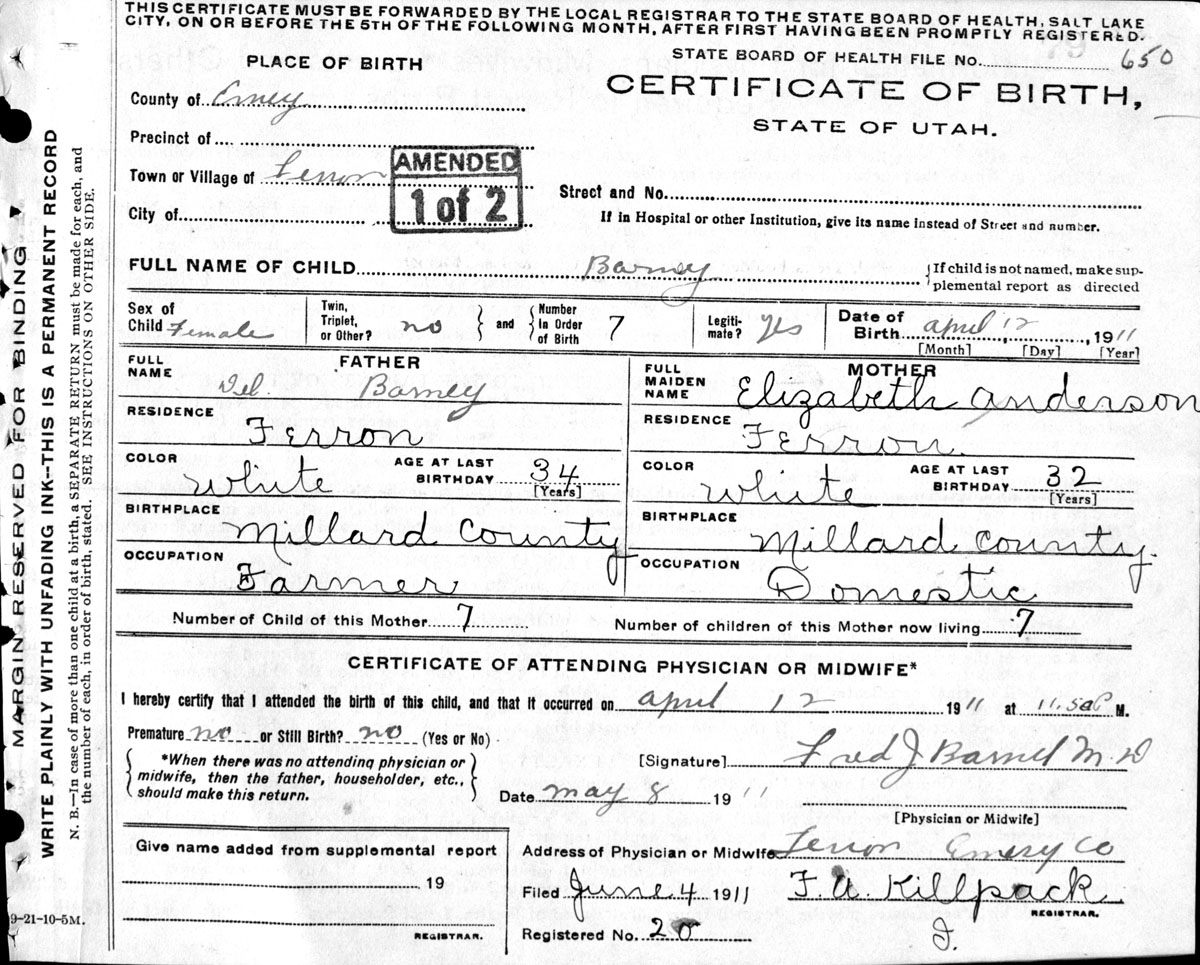 THIS CERTIFICATE MUST BE FORWARDED BY THE LOCAL REGISTRAR TO THE STATE BOARD OF HEALTH, SALT LAKE
CITY, ON OR BEFORE THE 5TH OF THE FOLLOWING MONTH, AFTER FIRST HAVING BEEN PROMPTLY REGISTERED.
STATE BOARD OF HEALTH FILE No. 650
CERTIFICATE OF BIRTH,
STATE OF UTAH.
PLACE OF BIRTH
County of Emery
Precinct of
Town or Village of Ferron
City of
AMENDED
1 of 2
Street and No.
If in Hospital or other Institution, give its name instead of Street and number.
FULL NAME OF CHILD Barney
{If child is not named, make sup-
plemental report as directed
Sex of Child Female
Twin, Triplet, or Other? no } and { Number in Order of Birth 7
Legiti-mate? yes
Date of Birth april 12, 1911
[Month] [Day] [Year]
FATHER
FULL NAME Del. Barney
RESIDENCE Ferron
COLOR White AGE AT LAST BIRTHDAY 34 [Years]
BIRTHPLACE Millard County
OCCUPATION Farmer
MOTHER
FULL MAIDEN NAME Elizabeth Anderson
RESIDENCE Ferron.
COLOR White AGE AT LAST BIRTHDAY 32 [Years]
BIRTHPLACE Millard County.
OCCUPATION Domestic
Number of Child of this Mother 7 Number of children of this Mother now living 7
CERTIFICATE OF ATTENDING PHYSICIAN OR MIDWIFE*
I hereby certify that I attended the birth of this child, and that it occurred on april 12 1911 at P M.
Premature no or Still Birth? no (Yes or No)
{ *When there was no attending physician or
midwife, then the father, householder, etc.,
should make this return. }
[Signature] Fred J M.D
Date may 8 1911
[Physician or Midwife]
Give name added from supplemental report
19
REGISTRAR.
Address of Physician or Midwife Ferron Emery Co
Filed June 4 1911 F A Killpack
REGISTRAR.
J.
Registered No. 20
MARGIN RESERVED FOR BINDING
WRITE PLAINLY WITH UNFADING INK--THIS IS A PERMANENT RECORD
N. B.—In case of more than one child at a birth, a SEPARATE RETURN must be made for each, and
the number of each, in order of birth, stated. SEE INSTRUCTIONS ON OTHER SIDE.
9-21-10-5M.